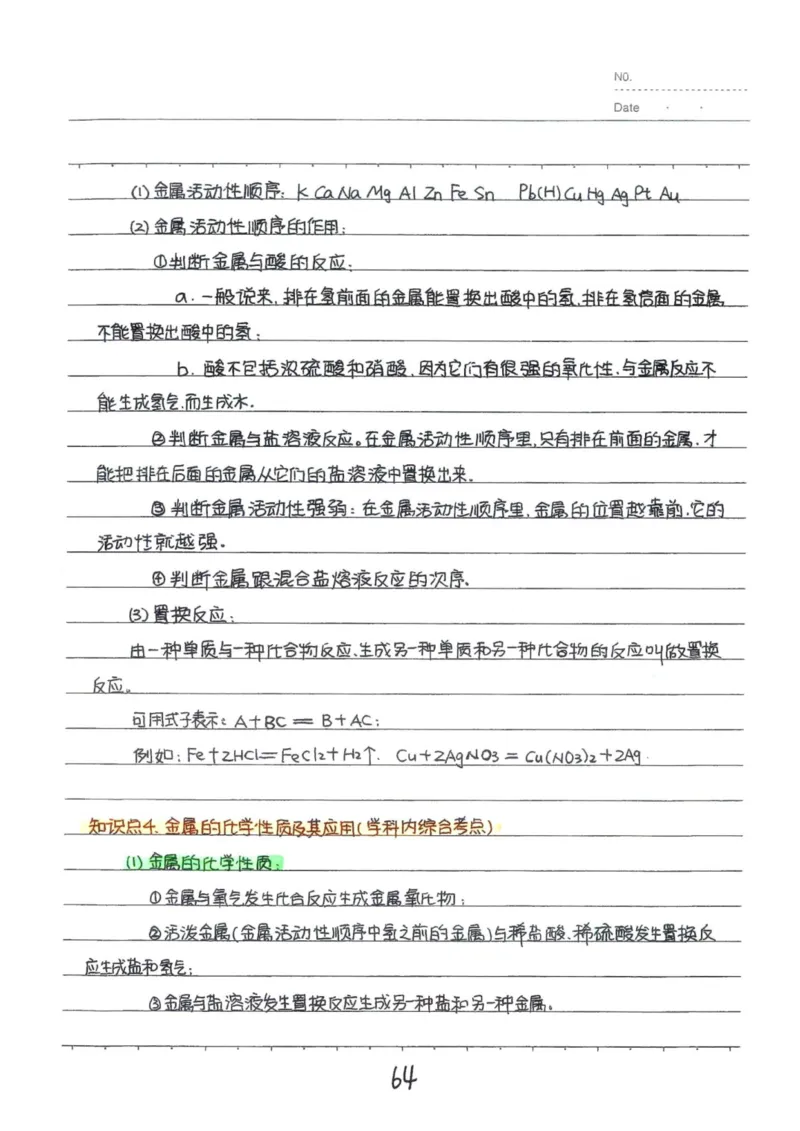 NO.
Date · ·
(1)金属活动性顺序: K Ca Na Mg Al Zn Fe Sn Pb(H) Cu Hg Ag Pt Au
(2)金属活动性顺序的作用:
①判断金属与酸的反应:
a. 一般说来,排在氢前面的金属能置换出酸中的氢,排在氢后面的金属
不能置换出酸中的氢;
b. 酸不包括浓硫酸和硝酸,因为它们有很强的氧化性,与金属反应不
能生成氢气,而生成水.
②判断金属与盐溶液反应。在金属活动性顺序里,只有排在前面的金属,才
能把排在后面的金属从它们的盐溶液中置换出来.
③判断金属活动性强弱:在金属活动性顺序里,金属的位置越靠前,它的
活动性就越强.
④判断金属跟混合盐熔液反应的次序.
(3)置换反应:
由一种单质与一种化合物反应、生成另一种单质和另一种化合物的反应叫做置换
反应。
可用式子表示: A+BC = B+AC;
例如: Fe+2HCl=FeCl2+H2↑. Cu+2AgNO3=Cu(NO3)2+2Ag.
知识点4、金属的化学性质及其应用(学科内综合考点)
(1)金属的化学性质:
①金属与氧气发生化合反应生成金属氧化物;
②活泼金属(金属活动性顺序中氢之前的金属)与稀盐酸、稀硫酸发生置换反
应生成盐和氢气;
③金属与盐溶液发生置换反应生成另一种盐和另一种金属。
64